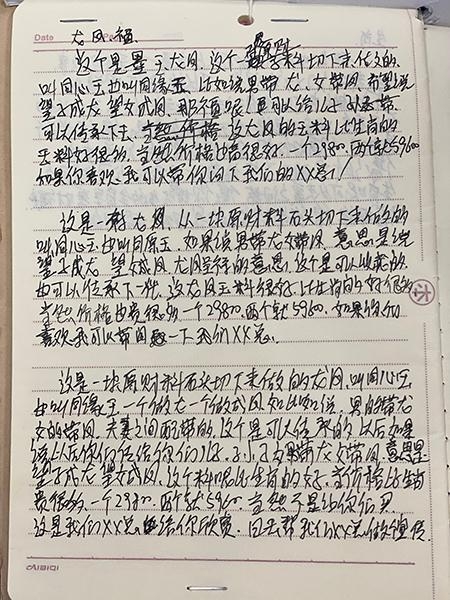 Date
龙凤福
这个是墨玉龙凤,这个是原料切下来做的,
叫同心玉也叫同缘玉,比如说男带龙,女带凤,希望说
望子成龙望女成凤,那
可以传承下去,当然价格 这龙凤的玉料比生肖的
玉料好很多,当然价格也贵很多,一个2980,两个就5960
如果你喜欢,我可以带你问下我们的XX总!
这是一对龙凤,从一块原财料石头切下来做的
叫同心玉也叫同原玉,如果说男带龙女带凤,意思是说
望子成龙,望女成凤,龙凤呈祥的意思,这个是可以收藏的,
也可以传承下一代,这龙凤玉料很好,比生肖的好很多,
当然价格也贵很多,一个2980,两个就5960,如果你们
喜欢我可以带问一下我们XX总.
这是一块原财料石头切下来做的龙凤,叫同心玉
也叫同缘玉,一个做龙一个做成凤,如比如说,男的带龙
女的带凤,夫妻之间配带的,这个是可以传承的,以后如果
说以后你们传给你们儿子,儿子如果带龙女带凤,意思是
望子成龙望女成凤,这个料呢比生肖的好,当价格比生肖
贵很多,一个2980,两个就5960,当然不是给你们买
这是我们XX总 给你欣赏,回去帮我们XX总做个宣传.